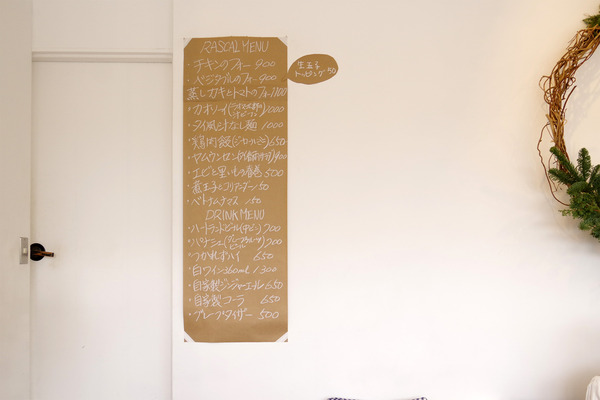 RASCAL MENU
・チキンのフォー 900
・ベジタブルのフォー 900
蒸しガキとトマトのフォー 1100
・カオソーイ 1000
・タイ風汁なし麺 1000
・鶏肉飯(ジーローハン) 650
・ヤムウンセン
・エビと里いもの春巻 500
・煮玉子とコリアンダー 150
・ベトナムナマス 150
DRINK MENU
・ハートランドビール(中ビン) 700
・パナシェ(グレープフルーツビール) 700
・つかれずハイ 650
・白ワイン 360ml 1300
・自家製ジンジャーエール 650
・自家製コーラ 650
・グレープタイザー 500
生玉子
トッピング 50